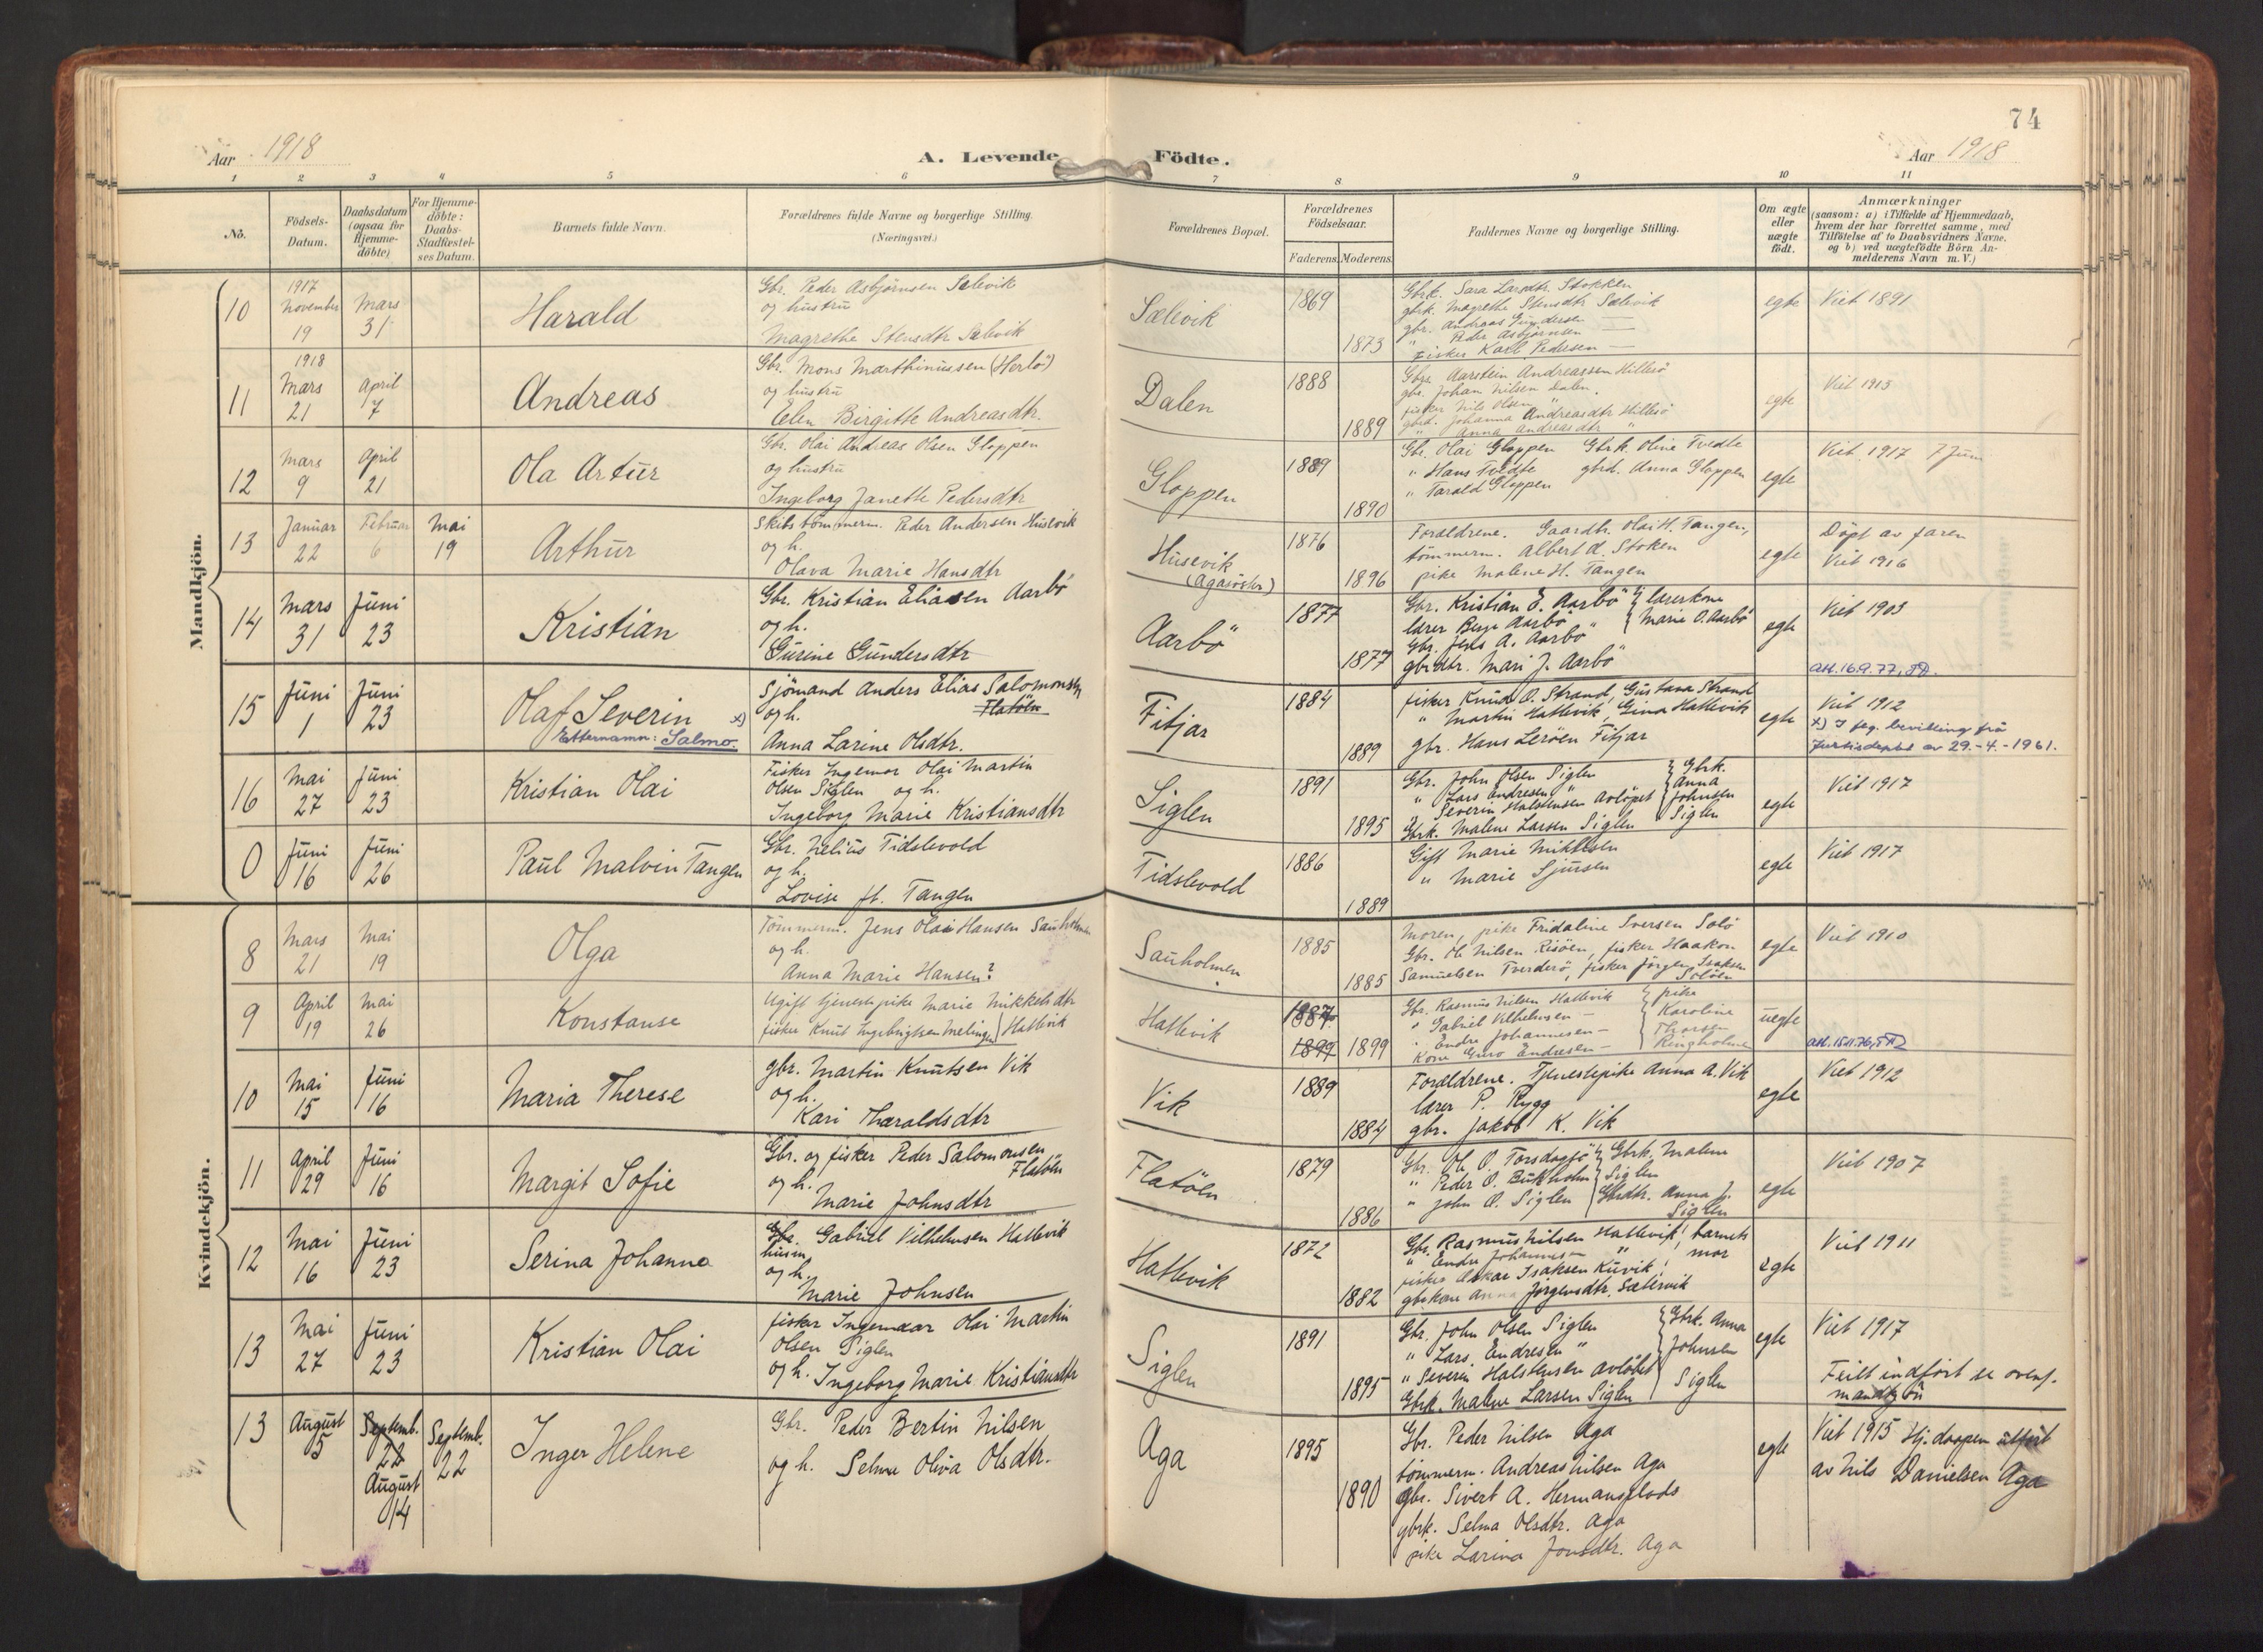 74
Aar 1918
A. Levende
Födte.
Aar 1918
1 2 3 4 5 6 7 8 9 10 11
No.
Födsels-
Datum.
Daabsdatum
(ogsaa for
Hjemme-
döbte)
For Hjemme-
döbte:
Daabs-
Stadfæstel-
ses Datum.
Barnets fulde Navn.
Forældrenes fulde Navne og borgerlige Stilling.
(Næringsvei.)
Forældrenes Bopæl.
Forældrenes
Födselsaar.
Faderens. Moderens.
Faddernes Navne og borgerlige Stilling.
Om ægte
eller
uægte
födt.
Anmærkninger
(saasom: a) i Tilfælde af Hjemmedaab,
hvem der har forrettet samme, med
Tilföielse af to Daabsvidners Navne.
og b) ved uægtefödte Börn An-
melderens Navn m. V.)
Mandkjön.
10
1917
November
19
Mars
31
Harald
Gbr. Peder Asbjørnsen Sælevik
og hustru
Magrethe Stensdtr Sælevik
Sælevik
1869
1873
Gbrk. Sara Larsdtr. Stokken
gbrk. Magrethe Stensdtr Sælevik
gbr. Andreas Gundersen —
" Peder Asbjørnsen —
fisker Karl Pedersen —
egte
Viet 1891
11
1918
Mars
21
April
7
Andreas
Gbr. Mons Marthinussen (Herlö)
og hustru
Elen Birgitte Andreasdtr.
Dalen
1888
1889
Gbr. Aarstein Andreassen Hillesö
gbr. Johan Nilsen Dalen.
fisker Nils Olsen "
gbrd. Johanna Andreasdtr Hillesö
" Anna Andreasdtr "
egte
Viet 1913
12
Mars
9
April
21
Ola Artur
Gbr. Olai Andreas Olsen Gloppen
og hustru
Ingeborg Janette Pedersdtr
Gloppen
1889
1890
Gbr. Olai Gloppen Gbrk. Oline Tvedte
" Hans Tvedte gbrd. Anna Gloppen
" Tarald Gloppen
egte
Viet 1917 7 Juni
13
Januar
22
Februar
6
Mai
19
Arthur
Skibstömmerm. Peder Andersen Husevik
og h.
Olava Marie Hansdtr
Husevik
1876
1896
Foraldrene. Gaardbr. Olai H. Tangen,
tömmerm. Albert A. Stoken
pike Malene H. Tangen
egte
Döpt av faren
Viet 1916
14
Mars
31
Juni
23
Kristian
Gbr. Kristian Eliasen Aarbö
og h.
Gurine Gundersdtr
Aarbö
1877
1877
Gbr. Kristian E. Aarbö } lærerkone
lærer Berje Aarbö " } Marie O. Aarbö
Gbr. Jens A. Aarbö
gbrdtr. Mari J. Aarbö
egte
Viet 1903
att. 16.9.77,
15
Juni
1
Juni
23
Olaf Severin x)
Etternamn: Salmo.
Sjömand Anders Elias Salomonsen
Flatöen
og h.
Anna Larine Olsdtr.
Fitjar
1884
1889
fisker Knud O. Strand, Gustava Strand
" Martin Hatlevik, Gina Hatlevik
gbr. Hans Leröen Fitjar
egte
Viet 1912
x) I fgl. bevilling frå
Justisdeptet av 29.-4.-1961.
16
Mai
27
Juni
23
Kristian Olai
Fisker Ingemar Olai Martin
Olsen Siglen og h.
Ingeborg Marie Kristiansdtr
Siglen
1891
1895
Gbr. John Olsen Siglen } Gbrk.
" Lars Andresen " } Anna
" Severin Halstensen Avlöpet } Johnsen
Gbrk. Malene Larsen Siglen } Siglen
egte
Viet 1917
0
Juni
16
Juni
26
Paul Malvin Tangen
Gbr. Nelius Tidslevold
og h.
Lovise f. Tangen
Tidslevold
1886
1889
Gift Marie Mikkelsen
" Marie Sjursen
egte
Viet 1917
Kvindekjön.
8
Mars
21
Mai
19
Olga
Tömmerm. Jens Olai Hansen Sauholmen
og h.
Anna Marie Hansen?
Sauholmen
1885
1885
Moren, pike Fridaline Iversen Solö
Gbr. Ole Nilsen Risöen, fisker Haakon
Samuelsen Tverderö, fisker Jörgen Isaksen
Solöen
egte
Viet 1910
9
April
19
Mai
26
Konstanse
Ugift tjenestepike Marie Mikkelsdtr
fisker Knut Ingebrigtsen Melingen } Hatlevik
Hatlevik
1887
1897 1899
Gbr. Rasmus Nilsen Hatlevik } pike
" Gabriel Vilhelmsen — } Karoline
" Endre Johannesen — } Thorsen
Kone Guro Endresen — } Ringholmen
uegte
att. 15.11.76,
10
Mai
15
Juni
16
Maria Therese
gbr. Martin Knutsen Vik
og h.
Kari Tharaldsdtr
Vik
1889
1884
Foraldrene. Tjenestepike Anna A. Vik
lærer P. Rygg
gbr. Jakob K. Vik
egte
Viet 1912
11
April
29
Juni
16
Margit Sofie
Gbr. og fisker Peder Salomonsen
Flatöen
og h.
Marie Johnsdtr
Flatöen
1879
1886
Gbr. Ole O. Torsdagsjö } Gbrk. Malene
" Peder O. Bukholm } Siglen
" John O. Siglen } Gbrdtr. Anna J.
Siglen
egte
Viet 1907
12
Mai
16
Juni
23
Serina Johanna
Gbr. Gabriel Vilhelmsen Hatlevik
husm.
og h.
Marie Johnsen
Hatlevik
1872
1882
Gbr. Rasmus Nilsen Hatlevik, barnets
" Endre Johannesen " mor
fisker Oskar Isaksen Kuvik
gbrkone Anna Jørgensdtr. Sætervik
egte
Viet 1911
13
Mai
27
Juni
23
Kristian Olai
fisker Ingemar Olai Martin
Olsen Siglen
og h. Ingeborg Marie Kristiansdtr
Siglen
1891
1895
Gbr. John Olsen Siglen } Gbrk. Anna
" Lars. Endresen " } Johnsen
" Severin Halstensen avlöbet } Siglen
Gbrk. Malene Larsen Siglen
egte
Viet 1917
Feilt indfört se ovenf.
mandkjön
13
August
5
Septemb.
22
August
14
Septemb.
22
Inger Helene
Gbr. Peder Bertin Nilsen
og h. Selma Oliva Olsdtr.
Aga
1895
1890
Gbr. Peder Nilsen Aga
tömmerm. Andreas Nilsen Aga
gbr. Sivert A. Hermansplads
gbrk. Selma Olsdtr. Aga
pike Larina Jonsdtr. Aga
egte
Viet 1915 Hj.daapen utfört
av Nils Danielsen Aga